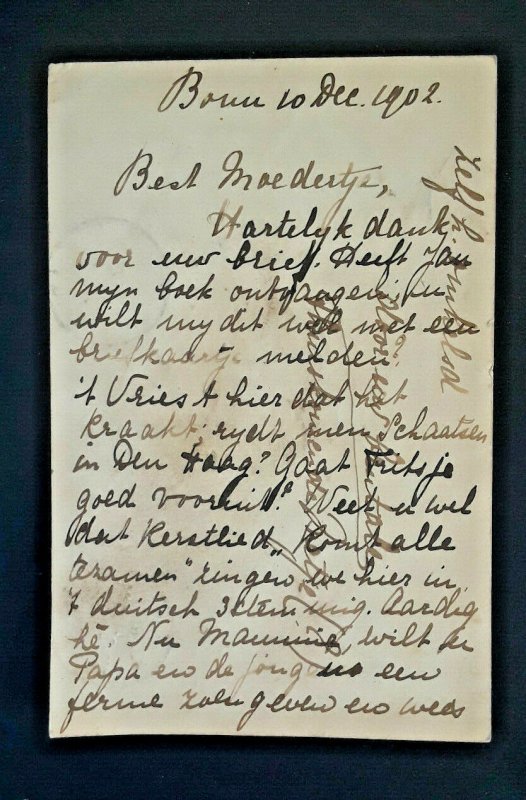 Bonn 10 Dec. 1902.
Best Moedertje,
Hartelyk dank
voor uw brief. Heeft Jan
myn boek ontvangen, en
wilt my dit wel met een
briefkaartje melden?
't Vriest hier dat het
kraakt, rydt men Schaatsen
in Den Haag? Gaat Fritsje
goed vooruit? Weet u wel
dat Kerstlied „Komt alle
tezamen" zingen we hier in
't duitsch 3stemmig. Aardig
hè. Nu Mammie, wilt u
Papa en de jongens een
ferme zoen geven en wees
zelf